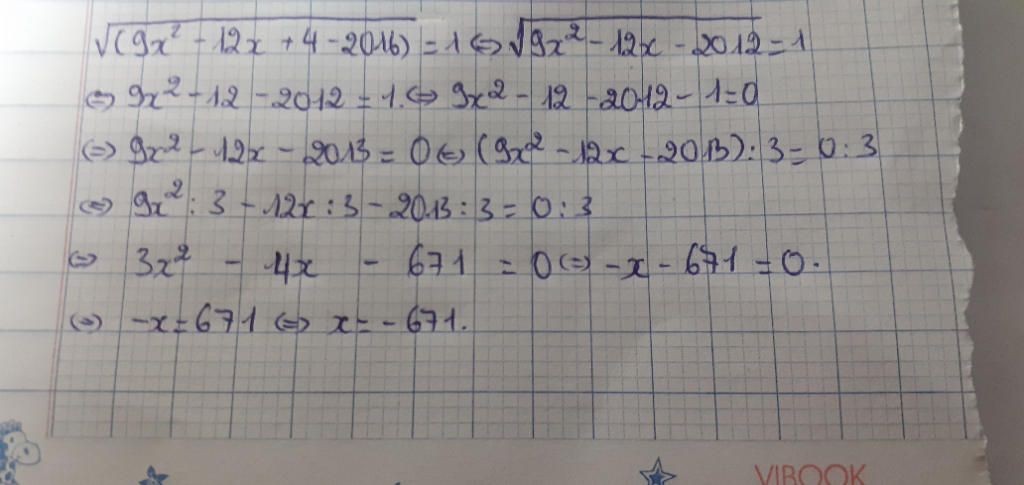 √(9x² - 12x + 4 - 2016) = 1 ⇔ √9x² - 12x - 2012 = 1
⇔ 9x² - 12 - 2012 = 1. ⇔ 9x² - 12 - 2012 - 1 = 0
⇔ 9x² - 12x - 2013 = 0 ⇔ (9x² - 12x - 2013) : 3 = 0 : 3
⇔ 9x² : 3 - 12x : 3 - 2013 : 3 = 0 : 3
⇔ 3x² - 4x - 671 = 0 ⇔ -x - 671 = 0.
⇔ -x = 671 ⇔ x = -671.
VIBOOK